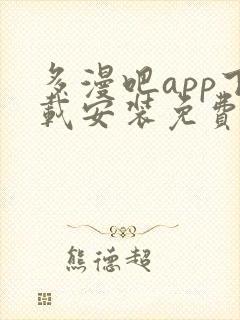 多漫吧app下
載安裝免費
熊德超